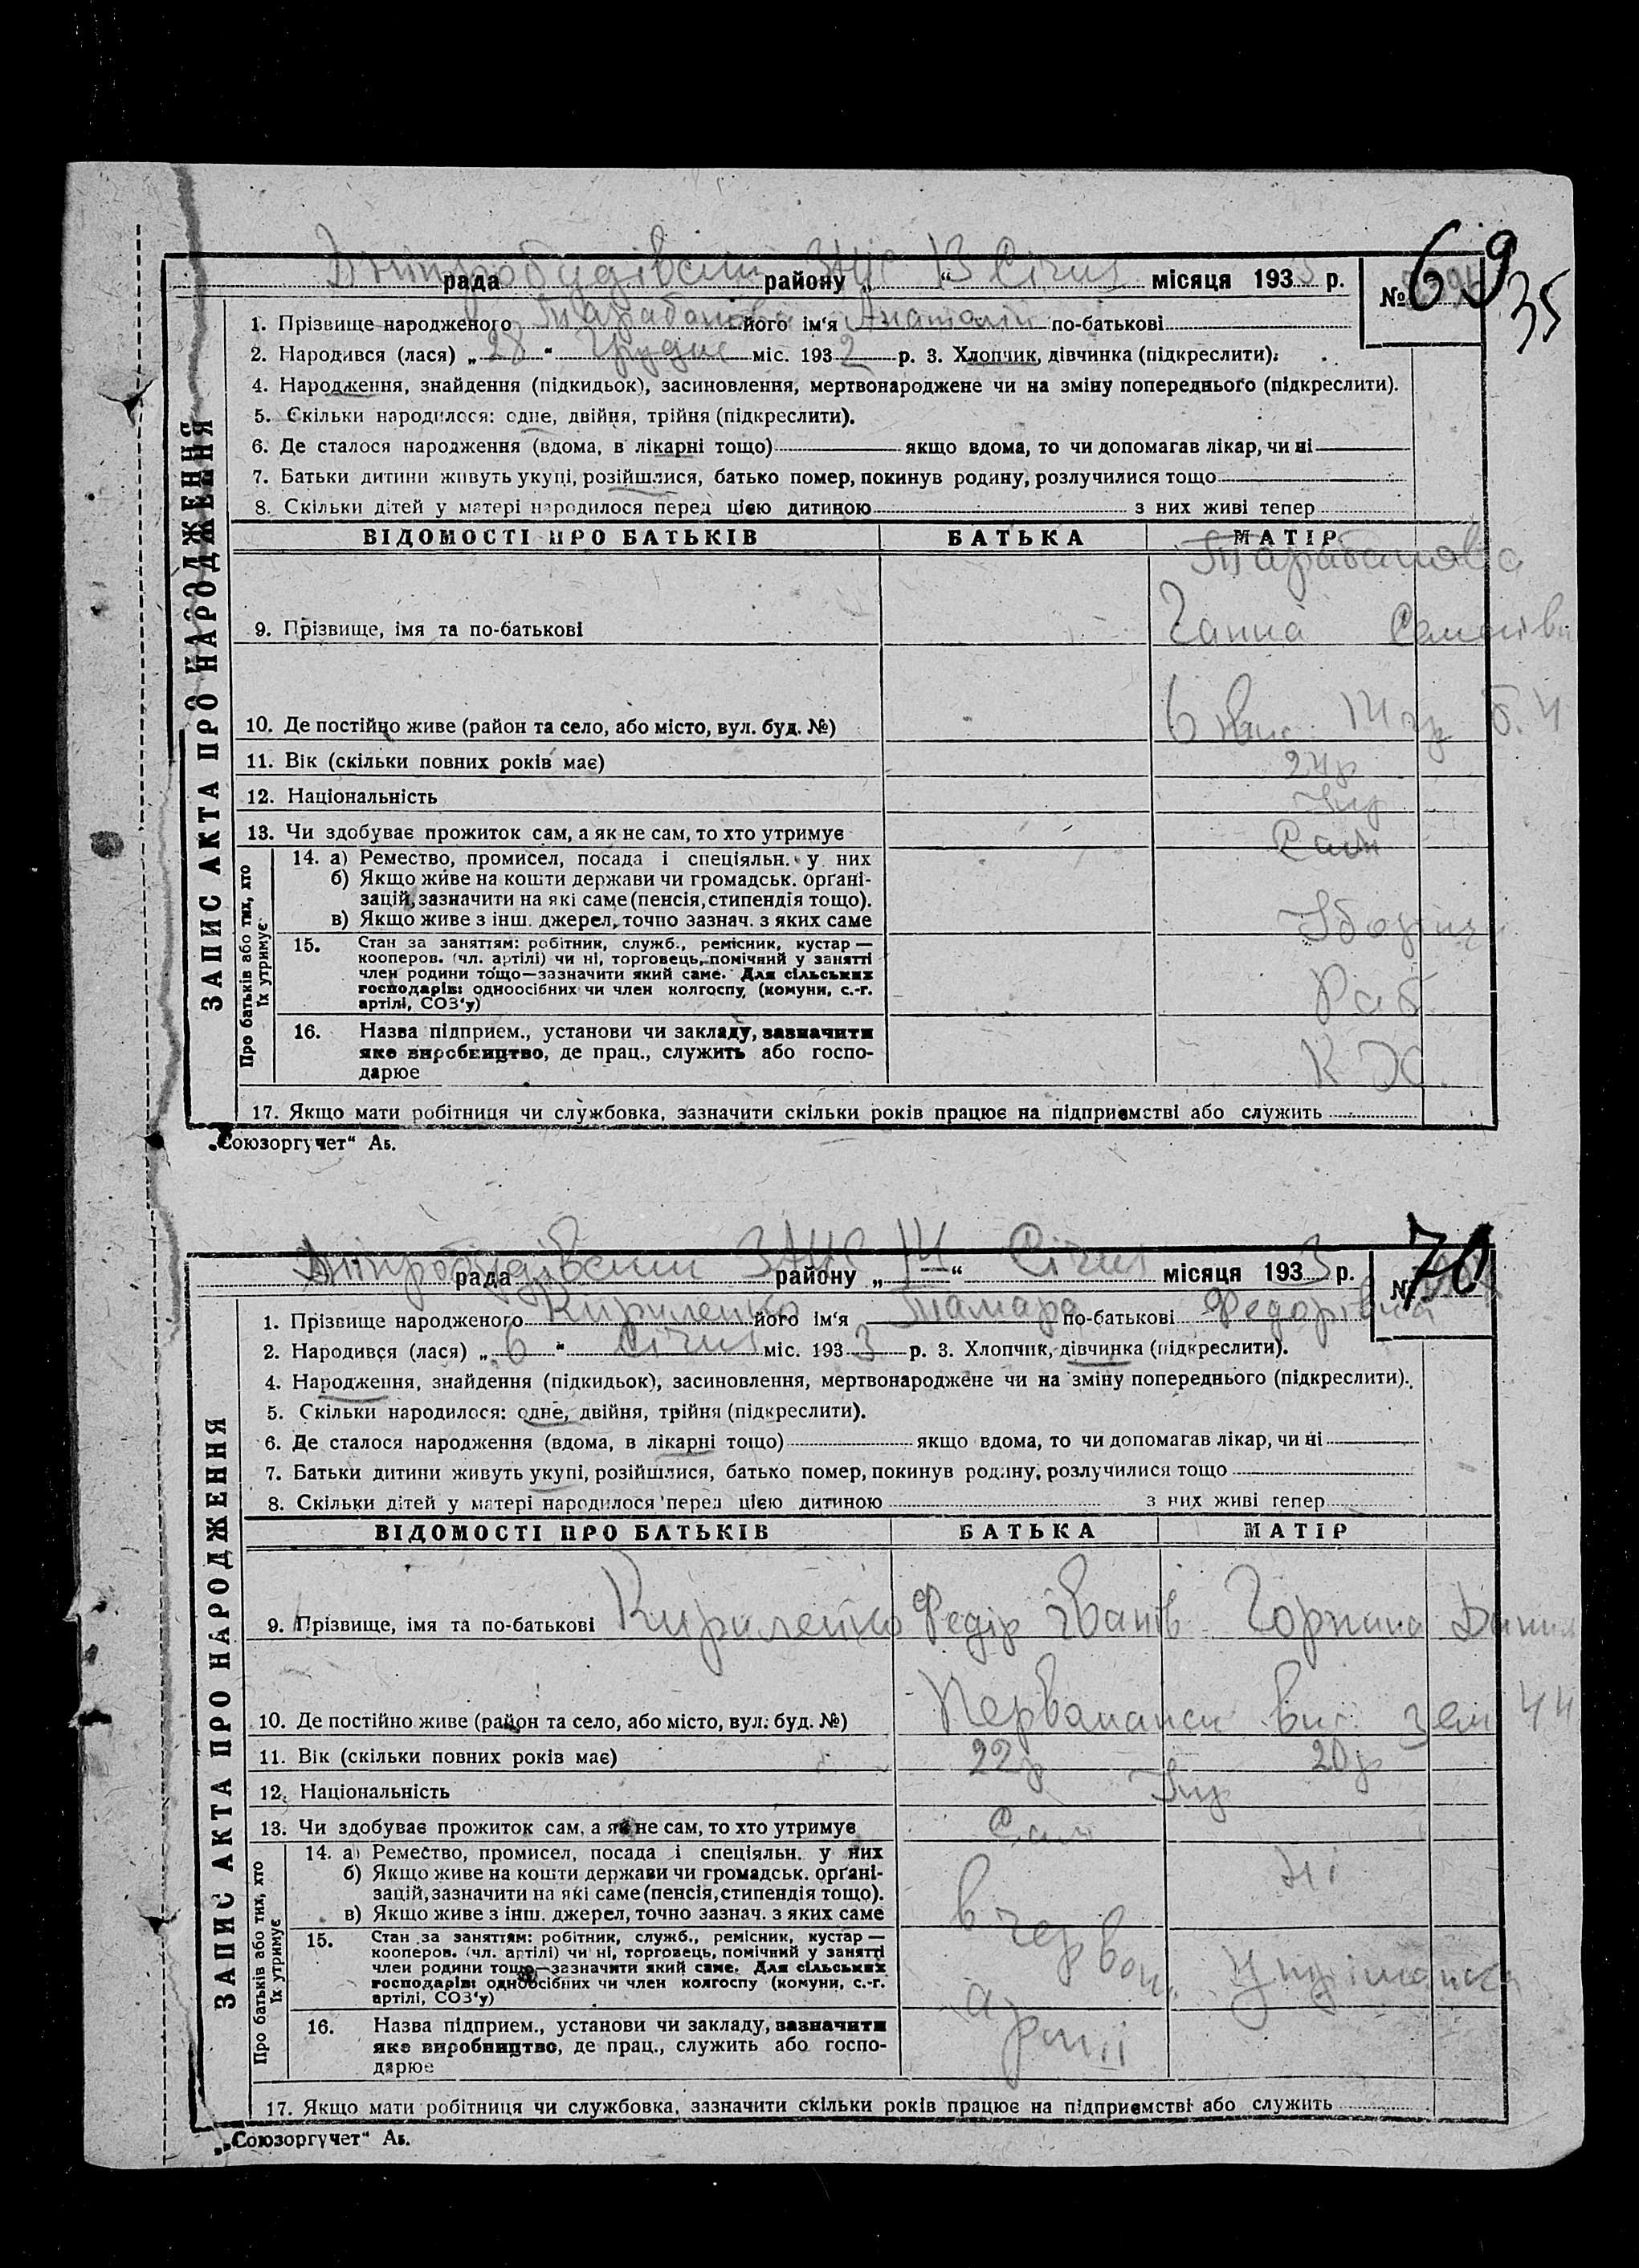 69
35
Дніпробудівський ЗАГС 13 Січня
рада району „ “ місяця 1933 р. №
1. Прізвище народженого Тарабанова його ім‘я Анатолій по-батькові
2. Народився (лася) „28“ Грудня міс. 1932 р. 3. Хлопчик, дівчинка (підкреслити).
4. Народження, знайдення (підкидьок), засиновлення, мертвонароджене чи на зміну попереднього (підкреслити).
5. Скільки народилося: одне, двійня, трійня (підкреслити).
6. Де сталося народження (вдома, в лікарні тощо) якщо вдома, то чи допомагав лікар, чи ні
7. Батьки дитини живуть укупі, розійшлися, батько помер, покинув родину, розлучилися тощо
8. Скільки дітей у матері народилося перед цією дитиною з них живі тепер
ЗАПИС АКТА ПРО НАРОДЖЕННЯ
ВІДОМОСТІ ПРО БАТЬКІВ БАТЬКА МАТІР
Тарабанова
9. Прізвище, імя та по-батькові Ганна
10. Де постійно живе (район та село, або місто, вул. буд. №) 6
11. Вік (скільки повних років має) 24р
12. Національність Укр
13. Чи здобуває прожиток сам, а як не сам, то хто утримує Сам
Про батьків або тих, хто їх утримує
14. а) Ремество, промисел, посада і спеціяльн. у них
б) Якщо живе на кошти держави чи громадськ. орґані-
зацій, зазначити на які саме (пенсія, стипендія тощо).
в) Якщо живе з інш. джерел, точно зазнач. з яких саме
15. Стан за заняттям: робітник, служб., ремісник, кустар —
кооперов. (чл. артілі) чи ні, торговець, помічний у занятті
член родини тощо—зазначити який саме. Для сільських
господарів: одноосібних чи член колгоспу, (комуни, с.-г.
артілі, СОЗ‘у)
Раб.
16. Назва підприєм., установи чи закладу, зазначити
яке виробництво, де прац., служить або госпо-
дарює
17. Якщо мати робітниця чи службовка, зазначити скільки років працює на підприємстві або служить
„Союзоргучет“ Аб.
70
Дніпробудівський ЗАГС 14 Січня
рада району „ “ місяця 1933 р. №
1. Прізвище народженого Кириленко його ім‘я Тамара по-батькові Федорівна
2. Народився (лася) „6“ Січня міс. 1933 р. 3. Хлопчик, дівчинка (підкреслити).
4. Народження, знайдення (підкидьок), засиновлення, мертвонароджене чи на зміну попереднього (підкреслити).
5. Скільки народилося: одне, двійня, трійня (підкреслити).
6. Де сталося народження (вдома, в лікарні тощо) якщо вдома, то чи допомагав лікар, чи ні
7. Батьки дитини живуть укупі, розійшлися, батько помер, покинув родину, розлучилися тощо
8. Скільки дітей у матері народилося перед цією дитиною з них живі тепер
ЗАПИС АКТА ПРО НАРОДЖЕННЯ
ВІДОМОСТІ ПРО БАТЬКІВ БАТЬКА МАТІР
9. Прізвище, імя та по-батькові Кириленко Федір Іванів Горпина Данил
10. Де постійно живе (район та село, або місто, вул. буд. №) 44
11. Вік (скільки повних років має) 22р 20р
12. Національність Укр
13. Чи здобуває прожиток сам, а як не сам, то хто утримує Сам
Про батьків або тих, хто їх утримує
14. а) Ремество, промисел, посада і спеціяльн. у них
б) Якщо живе на кошти держави чи громадськ. орґані-
зацій, зазначити на які саме (пенсія, стипендія тощо).
в) Якщо живе з інш. джерел, точно зазнач. з яких саме
в червон. ні
15. Стан за заняттям: робітник, служб., ремісник, кустар —
кооперов. (чл. артілі) чи ні, торговець, помічний у занятті
член родини тощо—зазначити який саме. Для сільських
господарів: одноосібних чи член колгоспу (комуни, с.-г.
артілі, СОЗ‘у)
армії
16. Назва підприєм., установи чи закладу, зазначити
яке виробництво, де прац., служить або госпо-
дарює
17. Якщо мати робітниця чи службовка, зазначити скільки років працює на підприємстві або служить
„Союзоргучет“ Аб.